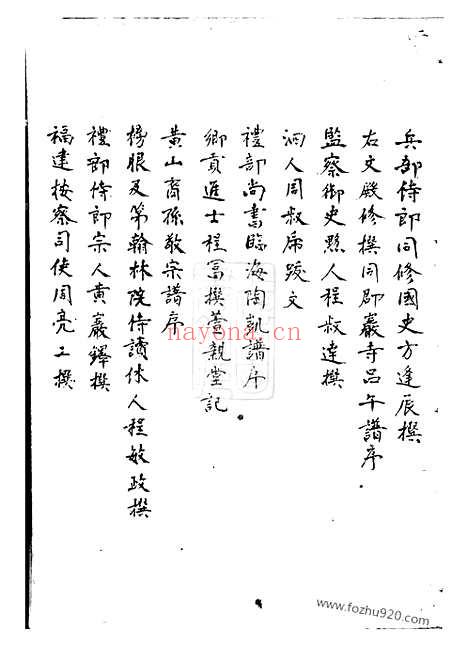 兵部侍郎同修國史方逢辰撰
右文殿修撰同郡巖寺呂午譜序
監察御史黟人程叔達撰
泗人周叔虎跋文
禮部尚書臨海陶凱譜序
鄉貢進士程富撰著親堂記
黄山裔孫敬宗譜序
榜眼及第翰林院侍讀休人程敏政撰
禮部侍郎宗人黄巖鐸撰
福建按察司使周亮工撰
nayona.cn
www.fozhu920.com